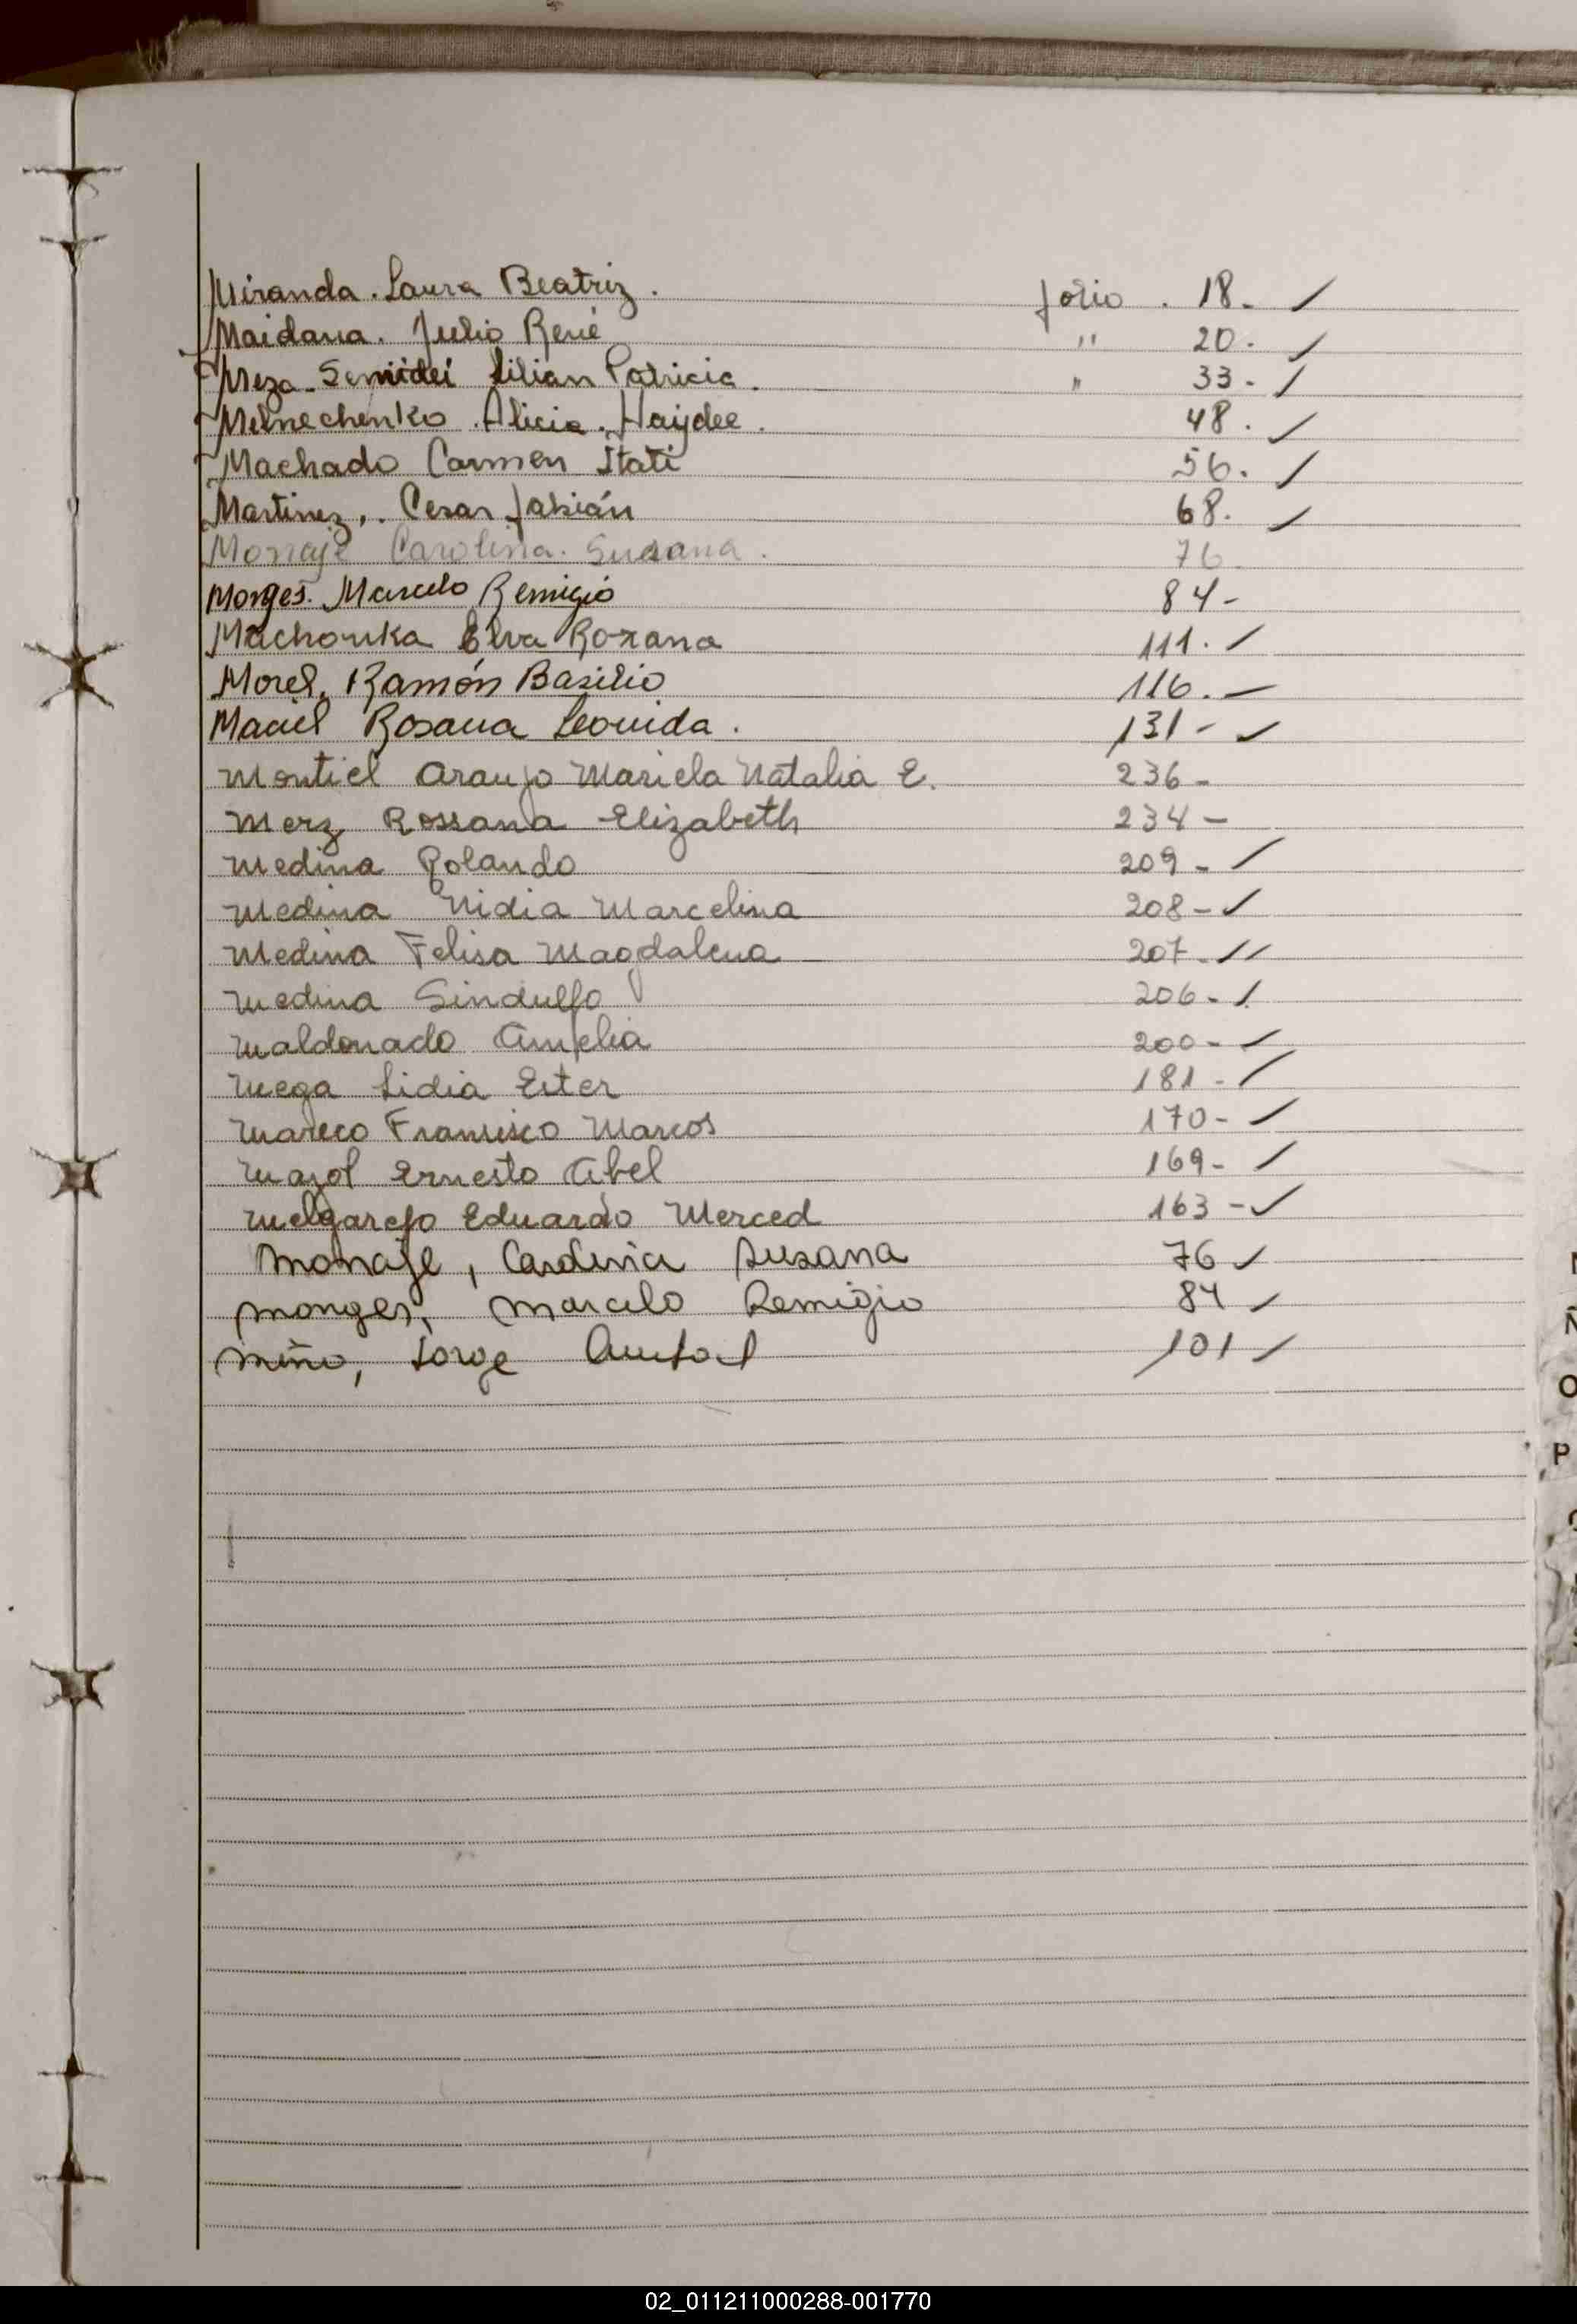 Miranda. Laura Beatriz. folio. 18. ✓
Maidana. Julio René " 20. ✓
Meza Semidei Lilian Patricia. " 33. ✓
Melnechenko. Alicia. Haydee. 48. ✓
Machado Carmen Itati 56. ✓
Martinez,. Cesar Fabián 68. ✓
Monaje Carolina. Susana. 76.
Monges. Marcelo Remigio 84-
Machonka Elva Roxana 111. ✓
Morel, Ramón Basilio 116. -
Maciel Rosana Leonida. 131- ✓
Montiel Araujo Mariela Natalia E. 236-
Merz Rossana Elizabeth 234-
Medina Rolando 209- ✓
Medina Nidia Marcelina 208- ✓
Medina Felisa Magdalena 207- ✓✓
Medina Sindulfo 206- ✓
Maldonado Amelia 200- ✓
Mega Lidia Ester 181- ✓
Mareco Francisco Marcos 170- ✓
Mazol Ernesto Abel 169- ✓
Melgarejo Eduardo Merced 163- ✓
Monaje, Carolina Susana 76 ✓
Monges, Marcelo Remigio 84 ✓
Miño, Jorge 101 ✓
O
P
02_011211000288-001770